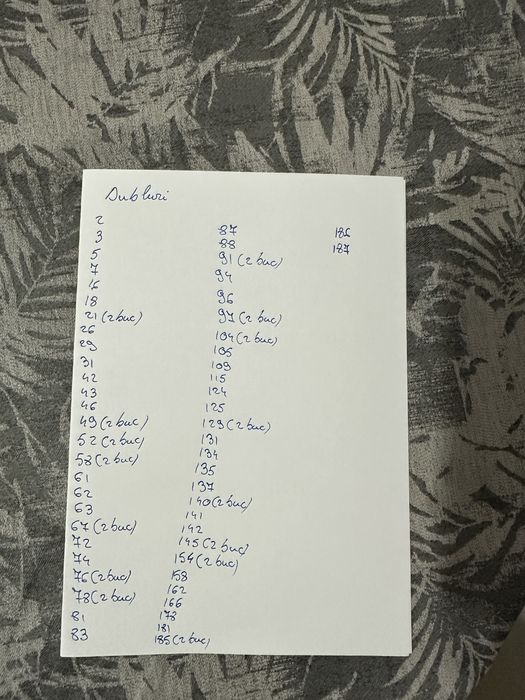 Dubluri
2
3
5
7
16
18
21 (2 buc)
26
29
31
42
43
46
49 (2 buc)
52 (2 buc)
58 (2 buc)
61
62
63
67 (2 buc)
72
74
76 (2 buc)
78 (2 buc)
81
83
87
88
91 (2 buc)
94
96
97 (2 buc)
104 (2 buc)
105
109
115
124
125
129 (2 buc)
131
134
135
137
140 (2 buc)
141
142
145 (2 buc)
154 (2 buc)
158
162
166
178
181
185 (2 buc)
186
187